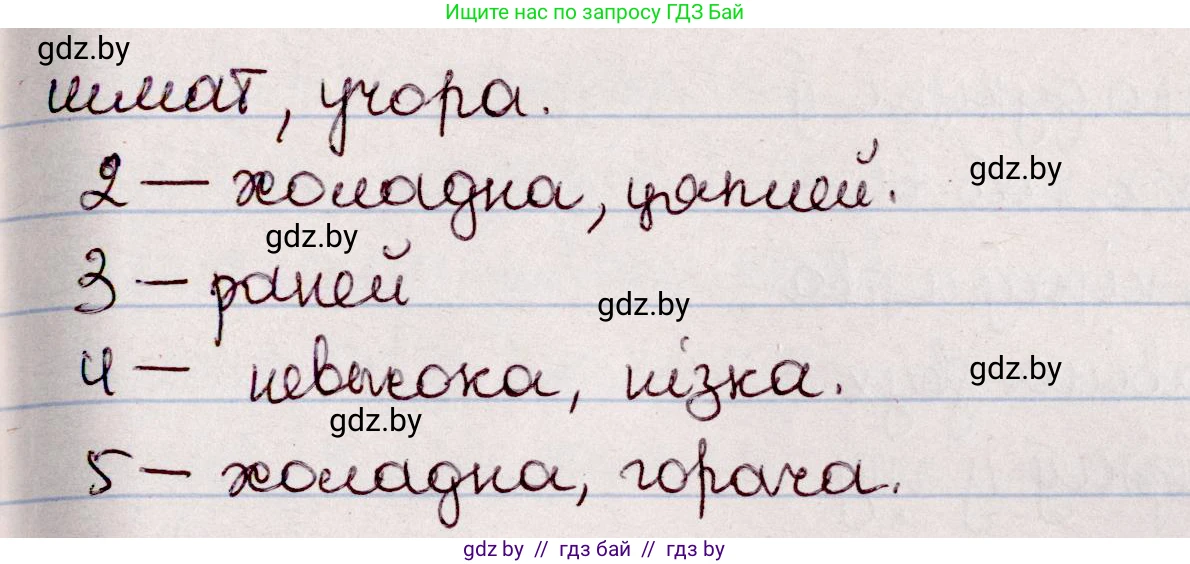 Ищите нас по запросу ГДЗ Бай
gdz.by
шмат, учора.
2 — холадна, цяплей.
gdz.by
gdz.by
3 — раней
gdz.by
4 — невысока, нізка.
gdz.by
gdz.by
5 — холадна, горача.
gdz by // гдз бай // гдз by